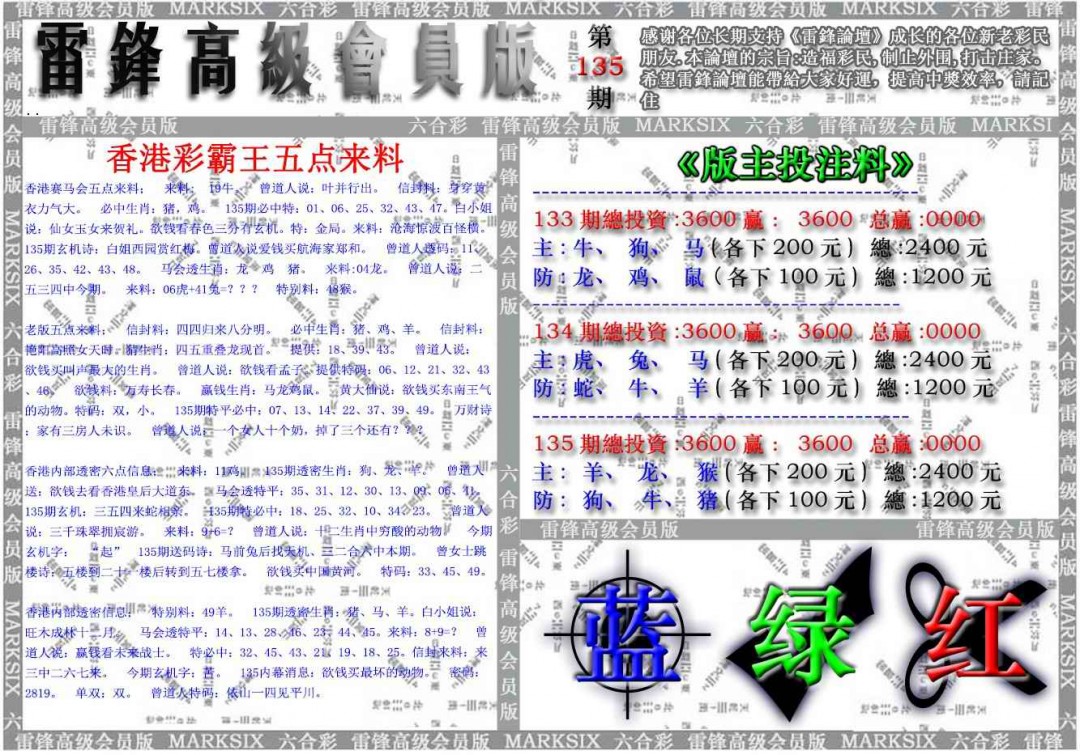 雷鋒高級會員版
第
135
期
感谢各位长期支持《雷鋒論壇》成长的各位新老彩民
朋友.本論壇的宗旨:造福彩民,制止外围,打击庄家。
希望雷鋒論壇能帶給大家好運，提高中獎效率，請記
住
香港彩霸王五点来料
香港赛马会五点来料： 来料： 19牛。 曾道人说：叶并行出。 信封料：身穿黄
衣力气大。 必中生肖：猪，鸡。 135期必中特：01、06、25、32、43、47。白小姐
说：仙女玉女来贺礼。欲钱看春色三分有玄机。特：金局。来料：沧海惊波百怪横。
135期玄机诗：白姐西园赏红梅。曾道人说爱钱买航海家郑和。 曾道人透码：11、
26、35、42、43、48。 马会透生肖：龙 鸡 猪。 来料:04龙。 曾道人说：二
五三四中今期。 来料：06虎+41兔=？？？ 特别料：48猴。
老版五点来料： 信封料：四四归来八分明。 必中生肖：猪、鸡、羊。 信封料：
艳阳高照女天时。猜生肖：四五重叠龙现首。 提供：18、39、43。 曾道人说：
欲钱买叫声最大的生肖。 曾道人说：欲钱看孟子。提供特码：06、12、21、32、43
、46。 欲钱料：万寿长春。 赢钱生肖：马龙鸡鼠。 黄大仙说：欲钱买东南王气
的动物。特码：双，小。 135期特平必中：07、13、14、22、37、39、49。 万财诗
：家有三房人未识。 曾道人说：一个女人十个奶，掉了三个还有？？？
香港内部透密六点信息： 来料：11鸡。 135期透密生肖：狗、龙、羊。 曾道人
送：欲钱去看香港皇后大道东。 马会透特平：35、31、12、30、13、09、06、41。
135期玄机：三五四来蛇相亲。 135期特必中：18、25、32、10、34、23。 曾道人
说：三千珠翠拥宸游。 来料：9+6=？ 曾道人说：十二生肖中穷酸的动物。 今期
玄机字： “起” 135期送码诗：马前兔后找天机、三二合六中本期。 曾女士跳
楼诗：五楼到二十一楼后转到五七楼拿。 欲钱买中国黄河。 特码：33、45、49。
香港内部透密信息： 特别料：49羊。 135期透密生肖：猪、马、羊。白小姐说：
旺木成林十二月。 马会透特平：14、13、28、46、23、44、45。来料：8+9=？ 曾
道人说：赢钱看未来战士。 特必中：32、45、43、21、19、18、25。信封来料：来
三中二六七来。 今期玄机字：苦。 135内幕消息：欲钱买最坏的动物。 密码：
2819。 单双：双。 曾道人特码：依山一四见平川。
《版主投注料》
133期總投資:3600赢： 3600 总赢:0000
主:牛、 狗、 马(各下200元) 總:2400元
防:龙、 鸡、 鼠(各下100元) 總:1200元
134期總投資:3600赢： 3600 总赢:0000
主:虎、 兔、 马(各下200元) 總:2400元
防:蛇、 牛、 羊(各下100元) 總:1200元
135期總投資:3600赢： 3600 总赢:0000
主: 羊、 龙、 猴(各下200元) 總:2400元
防: 狗、 牛、 猪(各下100元) 總:1200元
蓝 绿 红
雷锋高级会员版 MARKSIX 六合彩